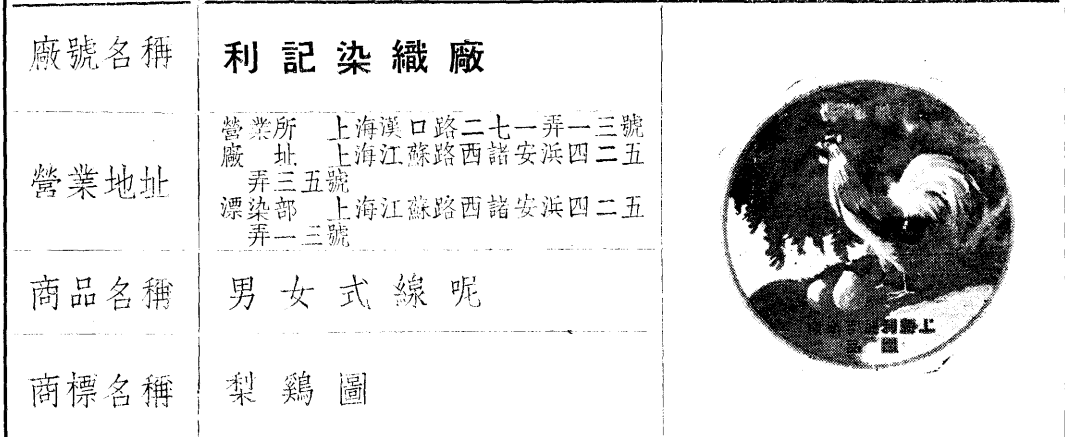 廠號名稱
利記染織廠
營業地址
營業所 上海漢口路二七一弄一三號
廠 址 上海江蘇路西諸安浜四二五
弄三五號
漂染部 上海江蘇路西諸安浜四二五
弄一三號
商品名稱
男女式線呢
商標名稱
梨鷄圖